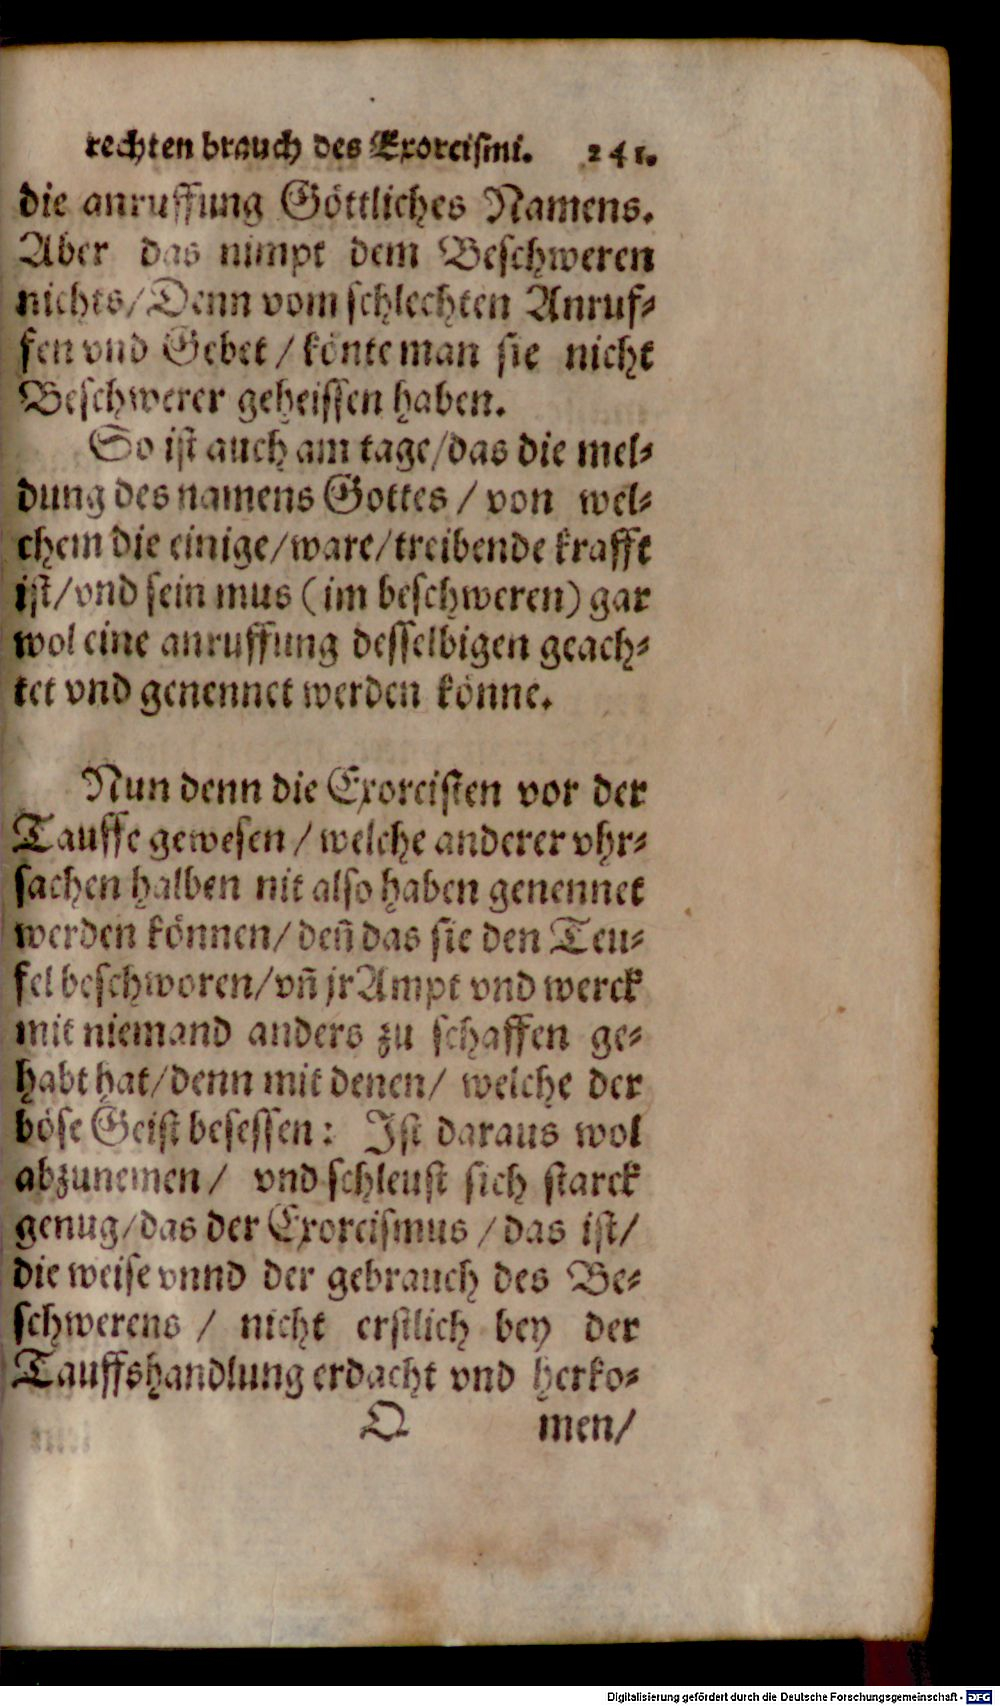 rechten brauch des Exorcismi. 241.
die anruffung Göttliches Namens.
Aber das nimpt dem Beschweren
nichts/Denn vom schlechten Anruf-
fen vnd Gebet / könte man sie nicht
Beschwerer geheissen haben.
So ist auch am tage/das die mel-
dung des namens Gottes / von wel-
chem die einige/ware/treibende krafft
ist/vnd sein mus (im beschweren) gar
wol eine anruffung desselbigen geach-
tet vnd genennet werden könne.
Nun denn die Exorcisten vor der
Tauffe gewesen / welche anderer vhr-
sachen halben nit also haben genennet
werden können/ deñ das sie den Teu-
fel beschworen/vñ jr Ampt vnd werck
mit niemand anders zu schaffen ge-
habt hat/denn mit denen/ welche der
böse Geist besessen: Ist daraus wol
abzunemen / vnd schleust sich starck
genug/das der Exorcismus / das ist/
die weise vnnd der gebrauch des Be-
schwerens / nicht erstlich bey der
Tauffshandlung erdacht vnd herko-
Q men/
Digitalisierung gefördert durch die Deutsche Forschungsgemeinschaft - DFG